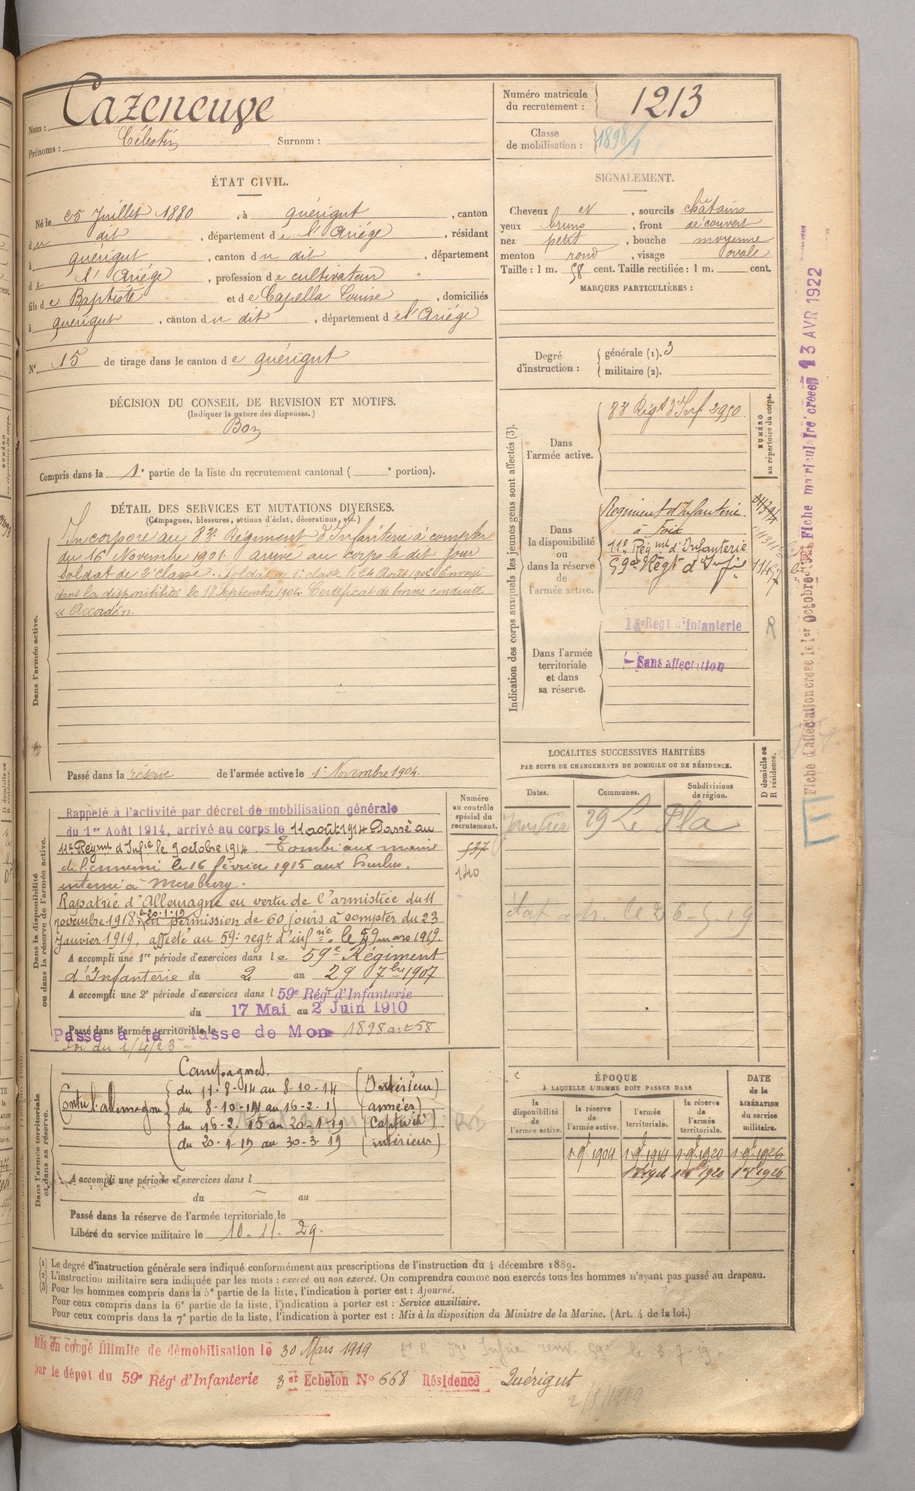 Nom : Cazeneuve
Prénoms : Célestin Surnom :
Numéro matricule
du recrutement : 1213
Classe
de mobilisation : 1898/
ÉTAT CIVIL.
Né le 25 Juillet 1880, à quérigut, canton
du dit, département de l'Ariège, résidant
à quérigut, canton du dit, département
de l'Ariège, profession de cultivateur
fils de Baptiste et de Capella Louise, domiciliés
à quérigut, canton du dit, département de l'Ariège
N° 15 de tirage dans le canton de quérigut
DÉCISION DU CONSEIL DE REVISION ET MOTIFS.
(Indiquer la nature des dispenses.)
Bon
Compris dans la 1e partie de la liste du recrutement cantonal ( e portion).
SIGNALEMENT.
Cheveux et, sourcils châtains
yeux bruns, front découvert
nez petit, bouche moyenne
menton rond, visage ovale
Taille : 1 m. 58 cent. Taille rectifiée : 1 m. cent.
MARQUES PARTICULIÈRES :
Degré
d'instruction :
générale (1). 3
militaire (2).
DÉTAIL DES SERVICES ET MUTATIONS DIVERSES.
(Campagnes, blessures, actions d'éclat, décorations, etc.)
Dans l'armée active.
Incorporé au 83e Régiment d'Infanterie à compter
du 16 Novembre 1901. arrivé au corps le dit jour
soldat de 2e classe. Soldat de 1e classe le 24 Août 1902 Envoyé
dans la disponibilité le 18 Septembre 1904. Certificat de bonne conduite
« Accordé ».
Passé dans la réserve de l'armée active le 1er Novembre 1904.
Indication des corps auxquels les jeunes gens sont affectés (3).
Dans
l'armée active.
83 Régt d'Inf 2950
NUMÉRO
au répertoire du corps.
Dans
la disponibilité
ou
dans la réserve
de
l'armée active.
Régiment d'Infanterie
à Foix
11e Régmt d'Infanterie
59e Régt d'Infie
Dans l'armée
territoriale
et dans
sa réserve.
Régt d'Infanterie
R
Sans affectation
Fiche d'affectation créée le 1er octobre
Fiche matriculaire créée le 13 AVR 1922
LOCALITÉS SUCCESSIVES HABITÉES
PAR SUITE DE CHANGEMENTS DE DOMICILE OU DE RÉSIDENCE.
Dates. Communes. Subdivisions
de région.
D domicile ou
R résidence.
29 Le Pla
Dans la disponibilité
ou dans la réserve de l'armée active.
Numéro
au contrôle
spécial du
recrutement.
537
140
Rappelé à l'activité par décret de mobilisation générale
du 1er Août 1914, arrivé au corps le 11 août 1914 Passé au
11e Régmt d'Infie le 9 octobre 1914. Tombé aux mains
de l'ennemi le 16 février 1915 aux Hurlus.
interné à Mersburg.
Rapatrié d'Allemagne en vertu de l'armistice du 11
novembre 1918 le 20.1.19 en permission de 60 jours à compter du 23
Janvier 1919, affecté au 59e regt d'infrie le 29 mars 1919.
A accompli une 1re période d'exercices dans le 59e Régiment
d'Infanterie du 2 au 29 7bre 1907
A accompli une 2e période d'exercices dans l 59e Rég d'Infanterie
du 17 Mai au 2 Juin 1910
Passé dans l'armée territoriale le
Passé à la Classe de Mon 1898 art 58
loi du 1/4/23
Dans l'armée territoriale
et dans sa réserve.
Campagnes.
Contre l'allemagne
du 11-8-14 au 8-10-14 (Intérieur)
du 8-10-14 au 16-2-1 (armées)
du 16-2-15 au 20-1-19 (captivité)
du 20-1-19 au 30-3-19 (intérieur)
A accompli une période d'exercices dans l
du au
Passé dans la réserve de l'armée territoriale le
Libéré du service militaire le 10-11-29.
ÉPOQUE
À LAQUELLE L'HOMME DOIT PASSER DANS
la
disponibilité
de
l'armée active.
la réserve
de
l'armée active.
l'armée
territoriale.
la réserve
de
l'armée
territoriale.
DATE
de la
LIBÉRATION
du service
militaire.
(1) Le degré d'instruction générale sera indiqué conformément aux prescriptions de l'instruction du 4 décembre 1889.
(2) L'instruction militaire sera indiquée par les mots : exercé ou non exercé. On comprendra comme non exercés tous les hommes n'ayant pas passé au drapeau.
(3) Pour les hommes compris dans la 5e partie de la liste, l'indication à porter est : Ajourné.
Pour ceux compris dans la 6e partie de la liste, l'indication à porter est : Service auxiliaire.
Pour ceux compris dans la 7e partie de la liste, l'indication à porter est : Mis à la disposition du Ministre de la Marine. (Art. 4 de la loi.)
Mis en congé illimité de démobilisation le 30 Mars 1919
par le dépôt du 59e Régt d'Infanterie 3er Échelon N° 668 Résidence Quérigut